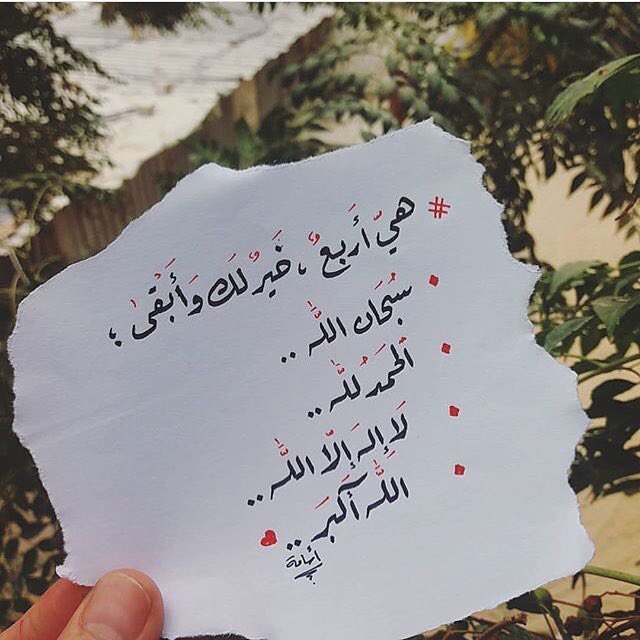 # هيَّ أَربعٌ ، خَيرٌ لَك وَأَبْقى ؛
سبُحَان اللّٰه ..
الْحَمَدُ للّٰه ..
لَا إلهَ إلّا اللّٰه ..
اللّٰه أكَبَر ..